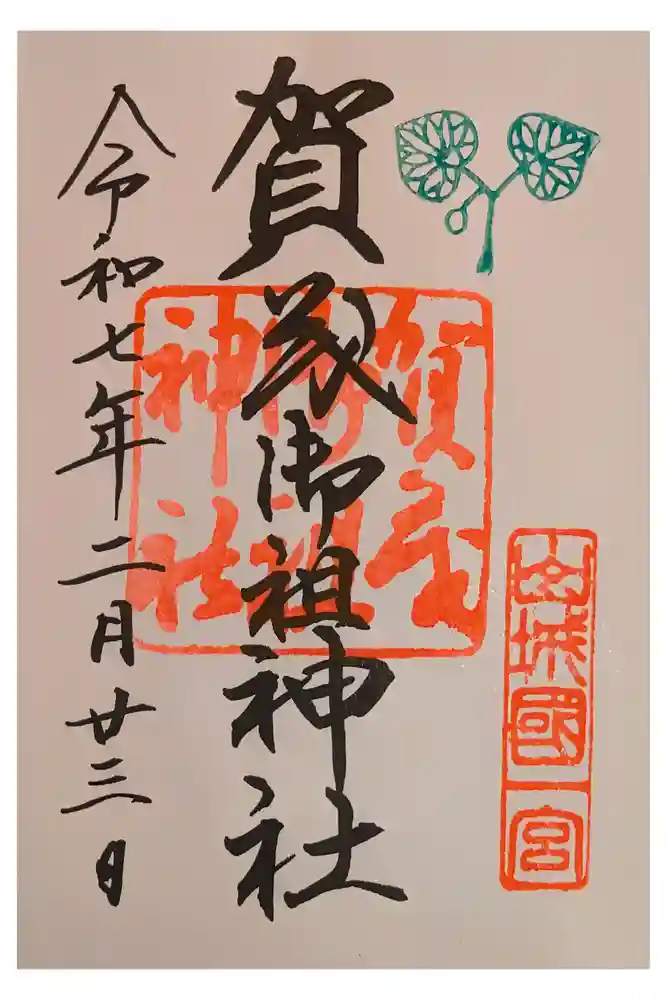 山城國一宮
賀茂御祖神社
賀茂
御祖
神社
令和七年二月廿三日